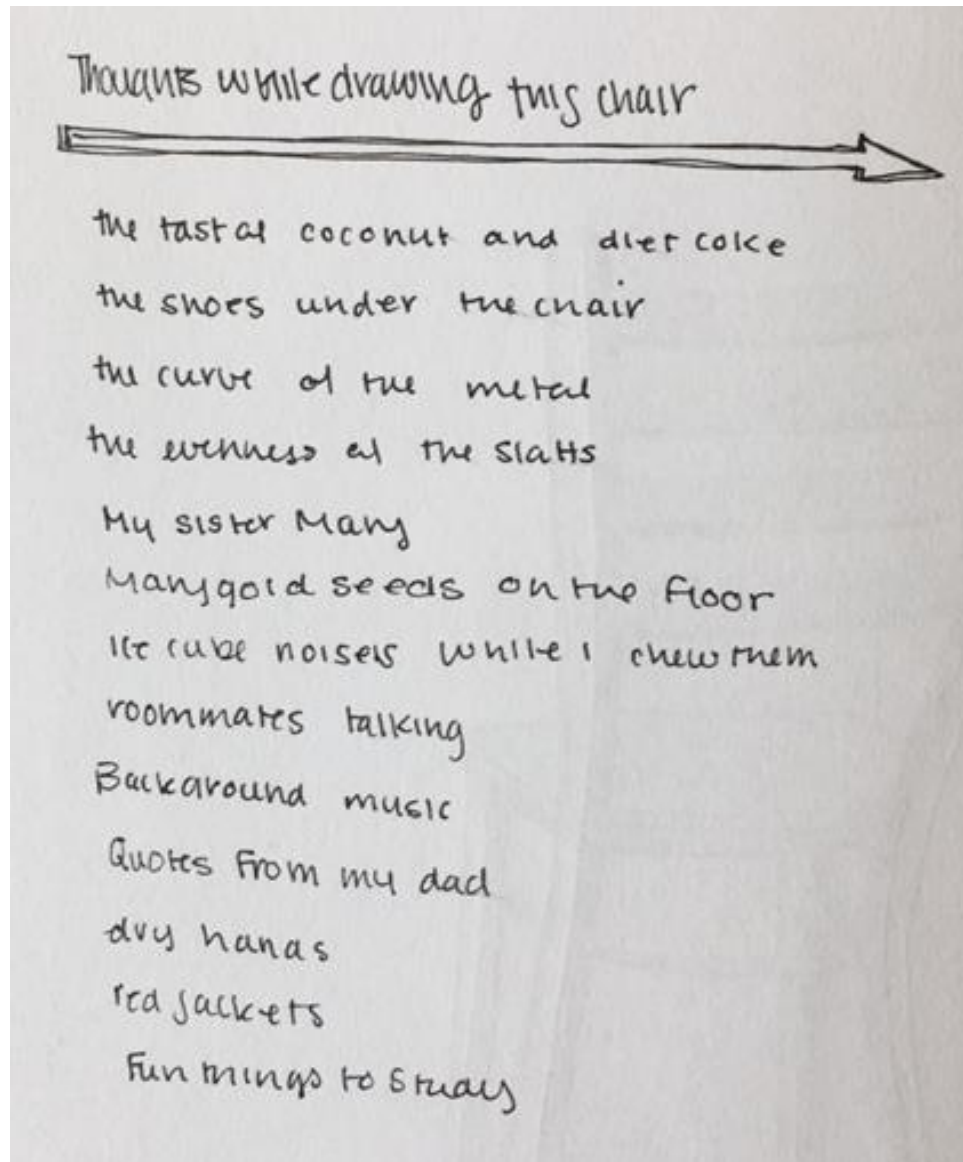 Thoughts while drawing this chair
the tast of coconut and diet coke
the shoes under the chair
the curve of the metal
the evenness of the slatts
My sister Mary
Marygold seeds on the floor
Ice cube noises while i chew them
roommates talking
Background music
Quotes From my dad
dry hands
red jackets
Fun things to study